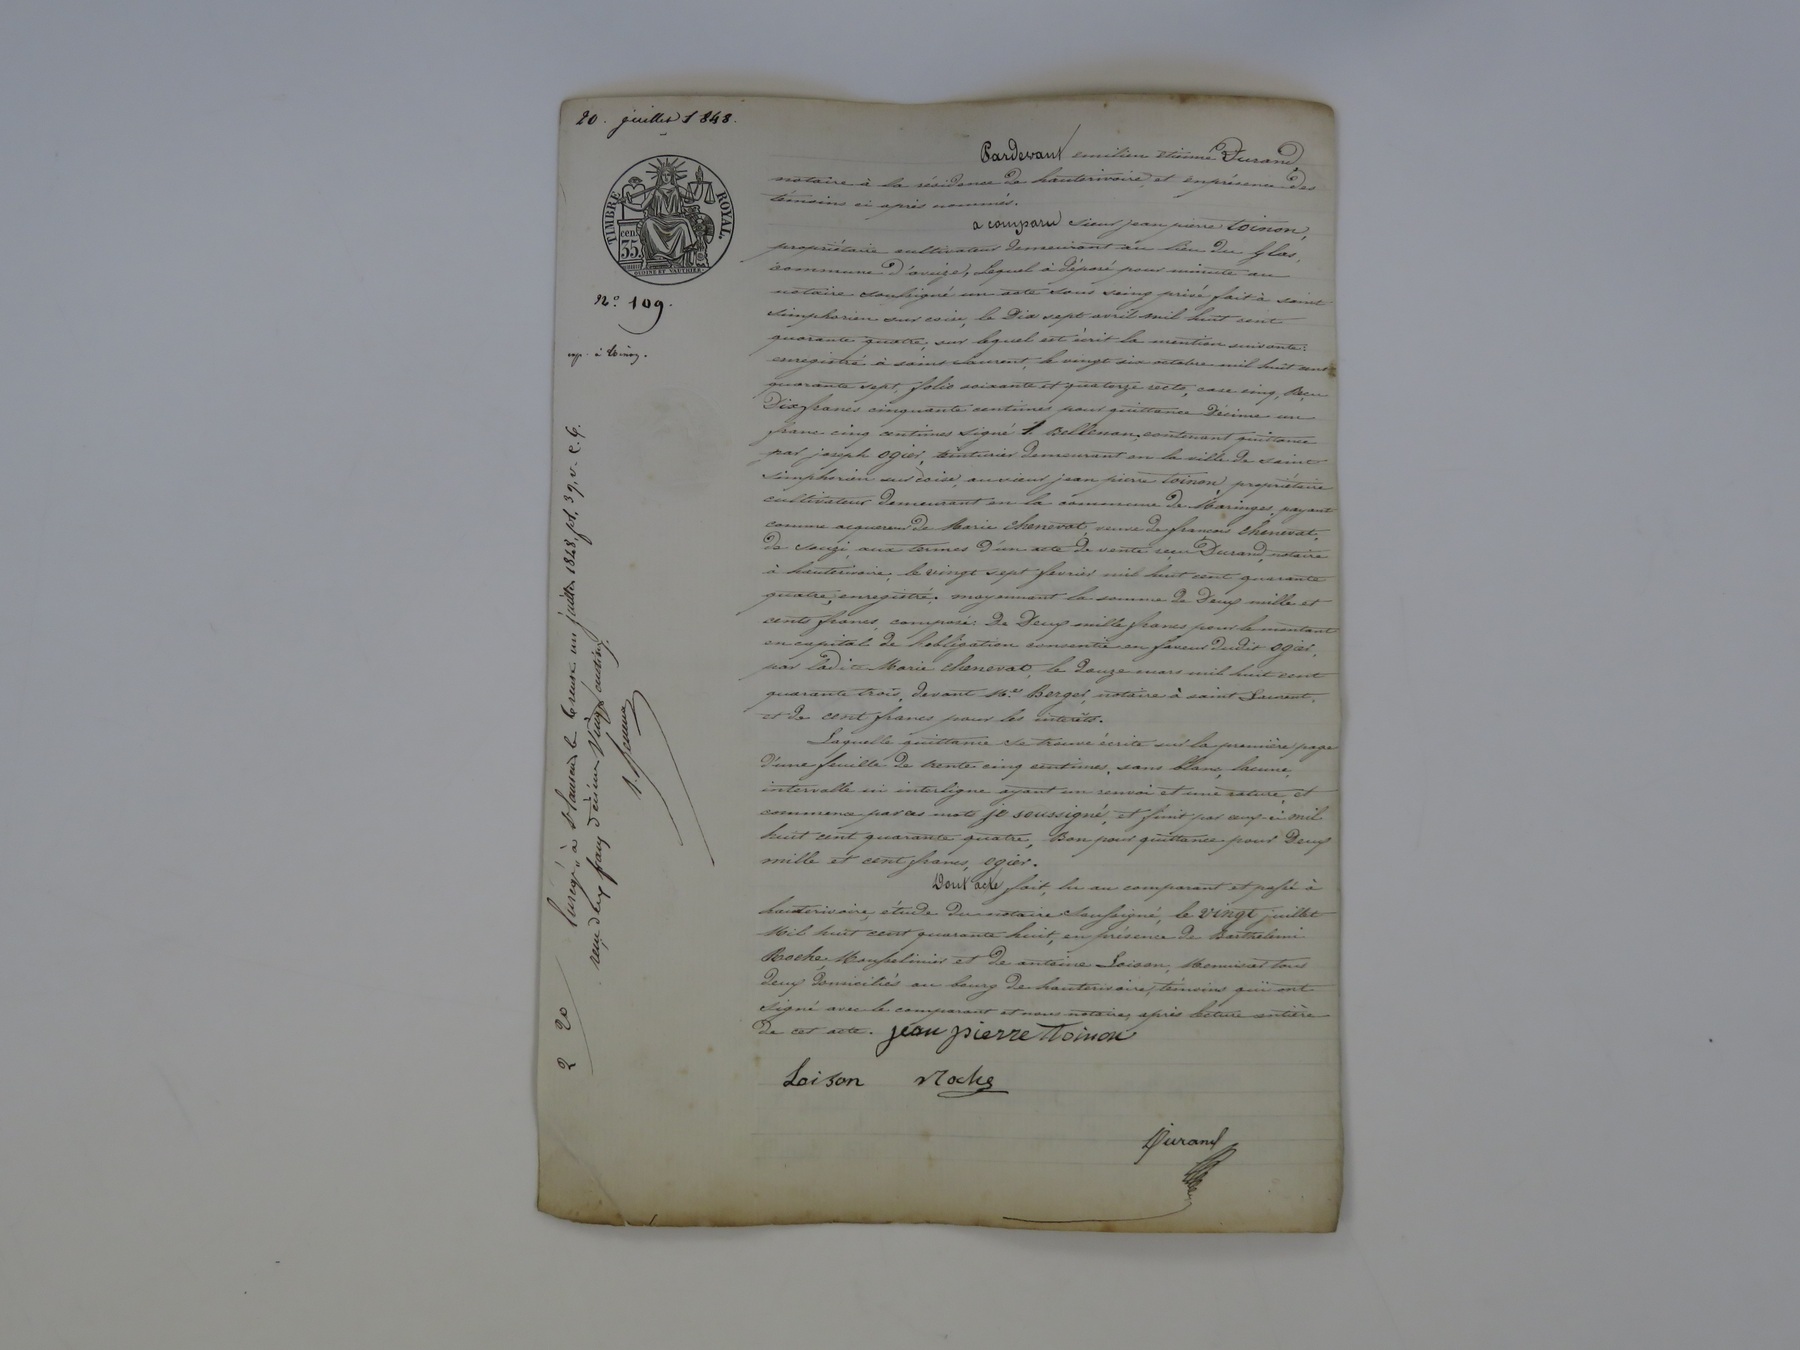 20. juillet 1848.
TIMBRE ROYAL.
cen. 35.
N° 109.
exp. à Toinon.
Pardevant emilien etienne Durand,
notaire à la résidence de hauterivoire, et en présence des
témoins ci après nommés.
a comparu sieur jean pierre toinon,
propriétaire cultivateur demeurant au lieu du Glas,
commune d'aveize, lequel à déposé pour minute au
notaire soussigné un acte sous seing privé fait à saint
simphorien sur coise, le Dix sept avril mil huit cent
quarante quatre, sur lequel est écrit la mention suivante:
enregistré à saint Laurent, le vingt six octobre mil huit cent
quarante sept, folio soixante et quatorze recto, case cinq, Reçu
Dix francs cinquante centimes pour quittance Décime un
franc cinq centimes signé Bellenan, contenant quittance
par joseph ogier, teinturier demeurant en la ville de saint
simphorien sur coise, au sieur jean pierre toinon, propriétaire
cultivateur demeurant en la commune de Maringes, payant
comme acquereur de Marie chenevat, veuve de francois chenevat,
de souzi, aux termes d'un acte de vente reçu Durand, notaire
à hauterivoire, le vingt sept fevrier mil huit cent quarante
quatre, enregistré; moyennant la somme de Deux mille et
cents francs, composé: de Deux mille francs pour le montant
en capital de l'obligation consentie en faveur dudit ogier,
par ladite Marie chenevat, le douze mars mil huit cent
quarante trois, devant Me. Berger, notaire à saint Laurent,
et de cent francs pour les intérêts.
Laquelle quittance se trouve écrite sur la première page
d'une feuille de trente cinq centimes, sans blanc, lacune,
intervalle ni interligne ayant un renvoi et une rature, et
commence par ces mots je soussigné, et finit par ceux-ci mil
huit cent quarante quatre, Bon pour quittance pour Deux
mille et cent francs, ogier.
Dont acte, fait, lu au comparant et passé à
hauterivoire, étude du notaire soussigné, le vingt juillet
Mil huit cent quarante huit, en présence de Barthelemi
Roche et de antoine Loison, Menuisier tous
deux domiciliés au bourg de hauterivoire, témoins qui ont
signé avec le comparant et nous notaire, après lecture entière
de cet acte. jean pierre Toinon
Loison Roche
Durand
Enregé à St Laurent le trente un juillet 1848, fol. 39, v. c. 6.
reçu deux francs décime vingt centimes.
2 20